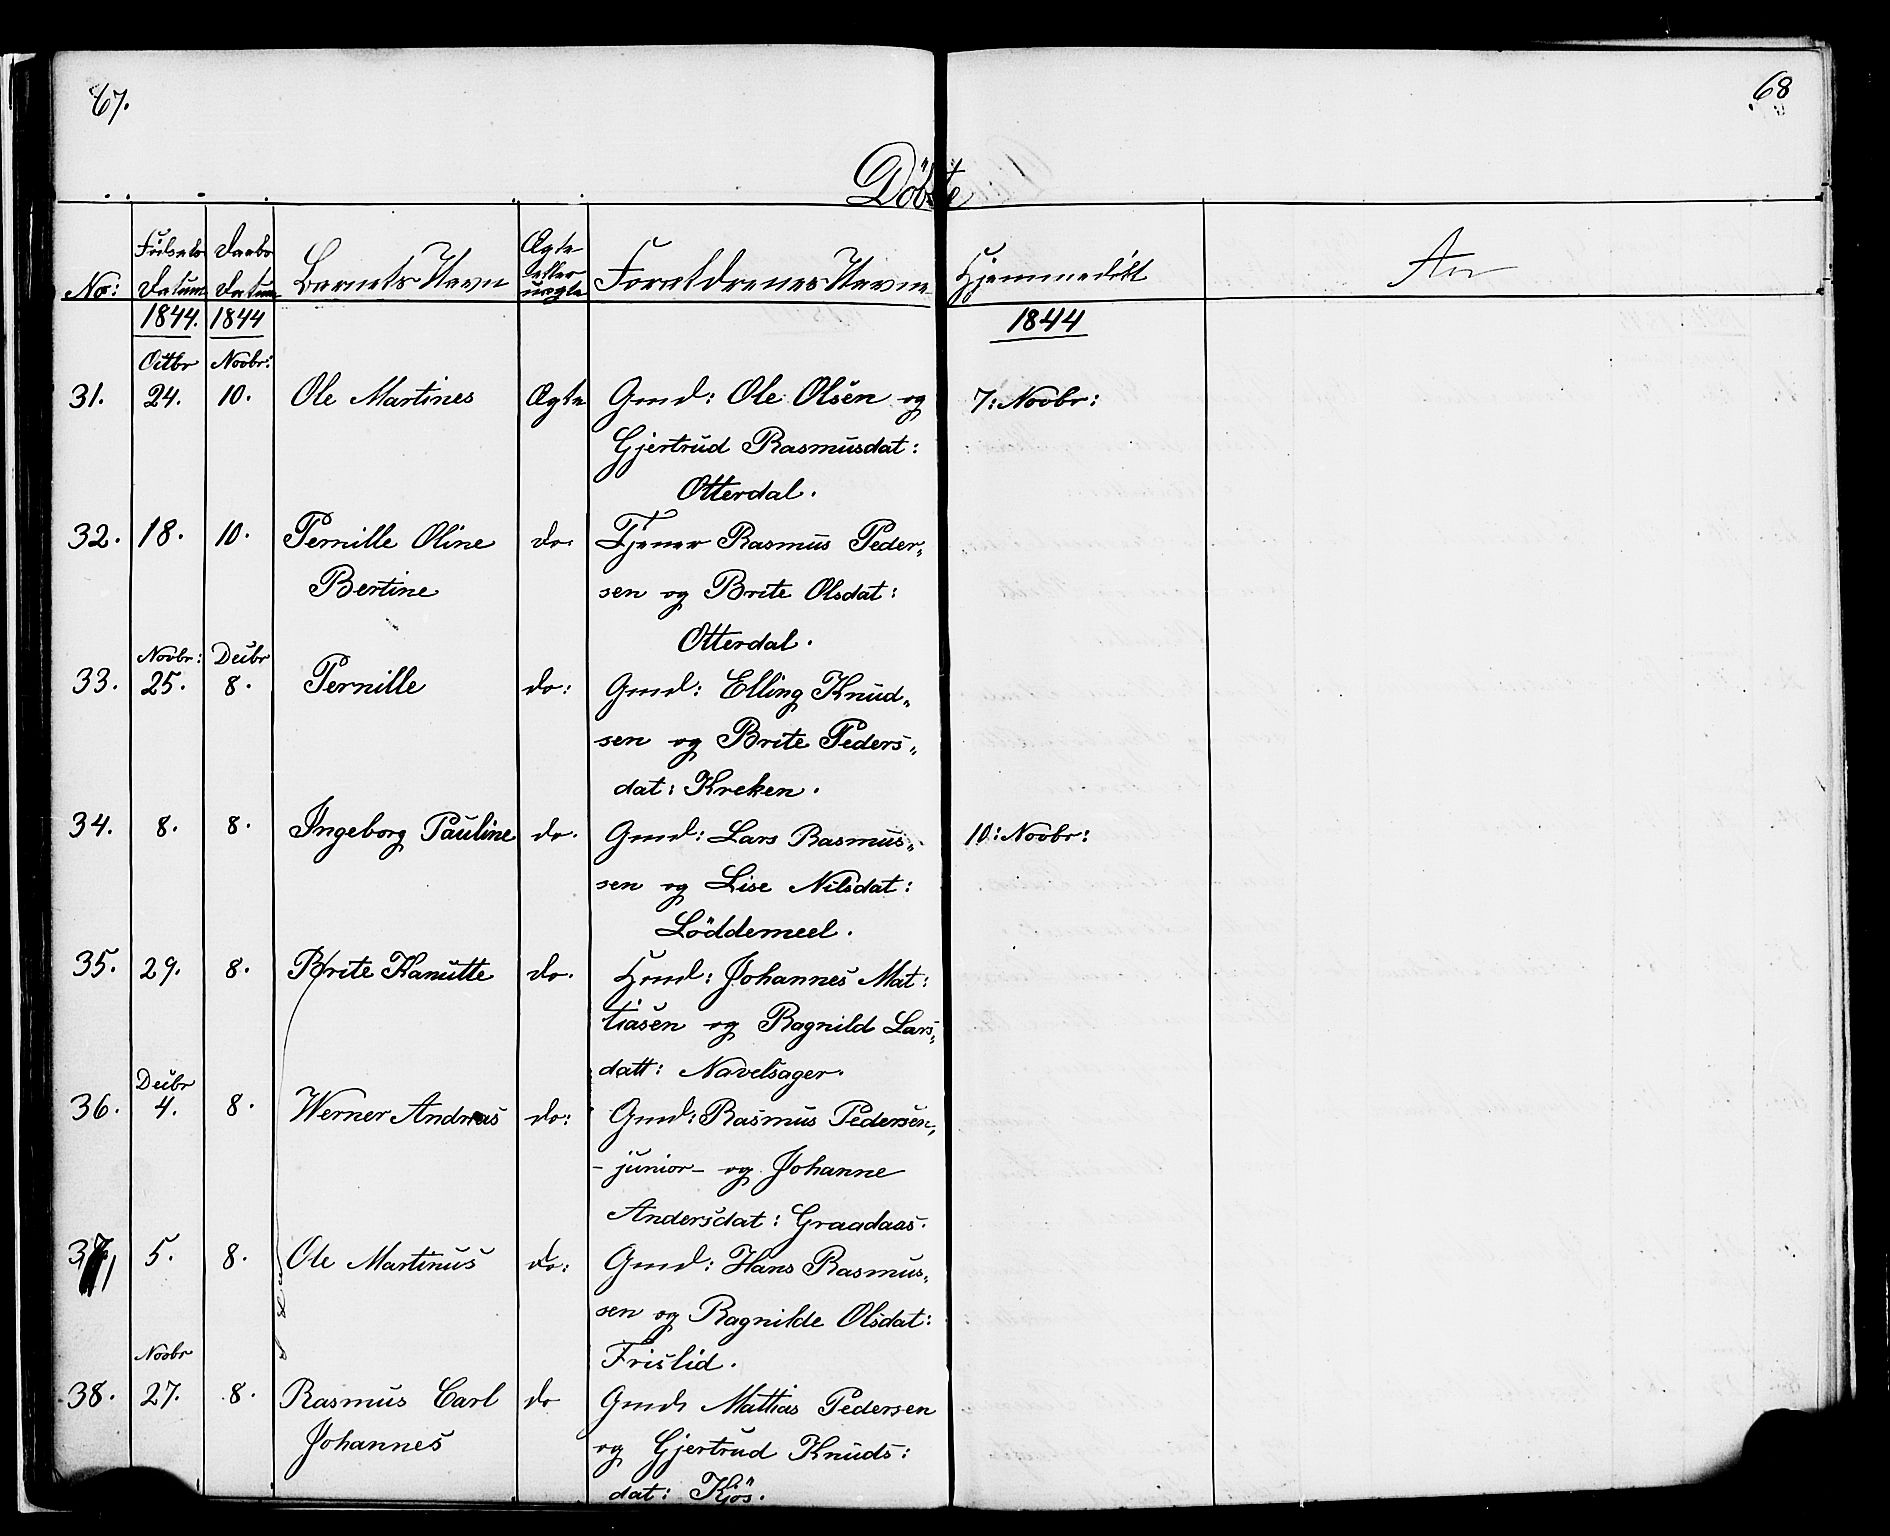 67.
68
Döbte
No: Födsels Datum Daabs Datum Barnets Navn Ægte eller uægte Forældrenes Navne Hjemmedöbt An
1844. 1844 1844
Octbr Novbr:
31. 24. 10. Ole Martines Ægte Gmd: Ole Olsen og 7: Novbr:
Gjertrud Rasmusdat:
Otterdal.
32. 18. 10. Pernille Oline do. Tjener Rasmus Peder„
Bertine sen og Brite Olsdat:
Otterdal.
Novbr: Decbr
33. 25. 8. Pernille do: Gmd: Elling Knud„
sen og Brite Peders„
dat: Kreken.
34. 8. 8. Ingeborg Pauline do. Gmd: Lars Rasmus„ 10: Novbr:
sen og Lise Nilsdat:
Löddemeel.
35. 29. 8. Brite Kanutte do. Hmd: Johannes Mat:
tiasen og Ragnild Lars„
datt: Navelsager.
Decbr
36. 4. 8. Werner Andreas do: Gmd: Rasmus Pedersen„
- junior - og Johanne
Andersdat: Graadaas.
37 5. 8. Ole Martinus do: Gmd: Hans Rasmus„
sen og Ragnilde Olsdat:
Frislid.
Novbr
38. 27. 8. Rasmus Carl do Gmd: Mattias Pedersen
Johannes og Gjertrud Knuds:
dat: Kjös.